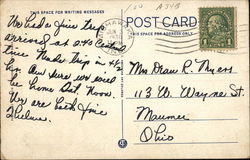 THIS SPACE FOR WRITING
POST CARD
THIS SPACE FOR ADDRESS ONLY
We had a fine trip
arrived at 2:40 Central
time. Made trip in 4 1/2
hrs. Am sure we will
be home Sat. Noon.
are fine
Thelma.
Mrs Dean R. Myers
113 W. Wayne St.
Maumee
Ohio